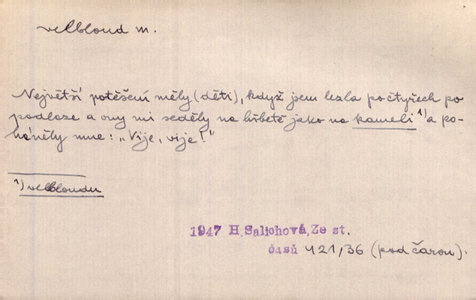 velbloud m.
Největší potěšení měly (děti), když jsem lezla po čtyřech po
podlaze a ony mi seděly na hřbetě jako na kameli ¹) a po-
háněly mne: „Vije, vije!"
¹) velbloudu
1947 H Salichová, Ze st.
časů 421/36 (pod čarou).